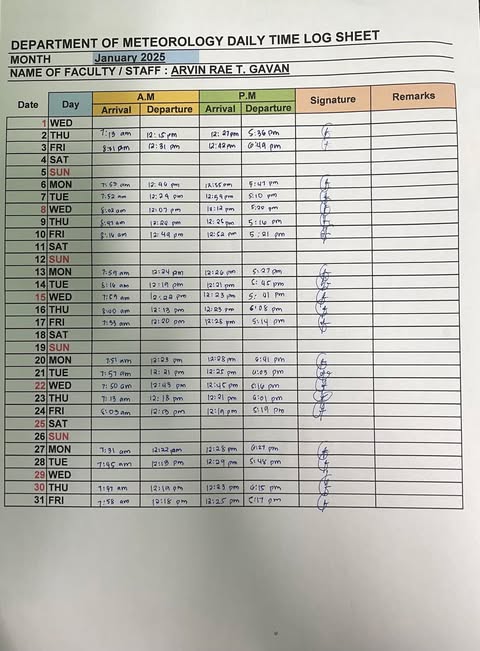 DEPARTMENT OF METEOROLOGY DAILY TIME LOG SHEET
MONTH January 2025
NAME OF FACULTY / STAFF : ARVIN RAE T. GAVAN
Date Day A.M P.M Signature Remarks
Arrival Departure Arrival Departure
1 WED
2 THU 7:13 am 12:15 pm 12:27 pm 5:36 pm
3 FRI 8:31 am 12:31 pm 12:42 pm 6:49 pm
4 SAT
5 SUN
6 MON 7:53 am 12:46 pm 12:55 pm 5:47 pm
7 TUE 7:52 am 12:29 pm 12:59 pm 5:10 pm
8 WED 8:02 am 12:07 pm 12:12 pm 5:20 pm
9 THU 12:20 pm 12:25 pm 5:16 pm
10 FRI 8:16 am 12:49 pm 12:52 pm 5:21 pm
11 SAT
12 SUN
13 MON 7:59 am 12:24 pm 12:26 pm 5:27 pm
14 TUE 8:16 am 12:19 pm 12:21 pm 6:45 pm
15 WED 7:59 am 12:22 pm 12:23 pm 5:41 pm
16 THU 8:00 am 12:13 pm 12:23 pm 6:08 pm
17 FRI 7:53 am 12:20 pm 12:28 pm 5:14 pm
18 SAT
19 SUN
20 MON 7:51 am 12:23 pm 12:28 pm 6:41 pm
21 TUE 7:57 am 12:21 pm 12:25 pm 6:03 pm
22 WED 7:50 am 12:43 pm 12:45 pm 5:16 pm
23 THU 7:13 am 12:18 pm 12:21 pm 6:01 pm
24 FRI 8:03 am 12:13 pm 12:19 pm 5:19 pm
25 SAT
26 SUN
27 MON 7:31 am 12:22 pm 12:28 pm 6:27 pm
28 TUE 7:45 am 12:19 pm 12:29 pm 5:48 pm
29 WED
30 THU 7:47 am 12:19 pm 12:23 pm 6:15 pm
31 FRI 7:58 am 12:18 pm 12:25 pm 5:17 pm